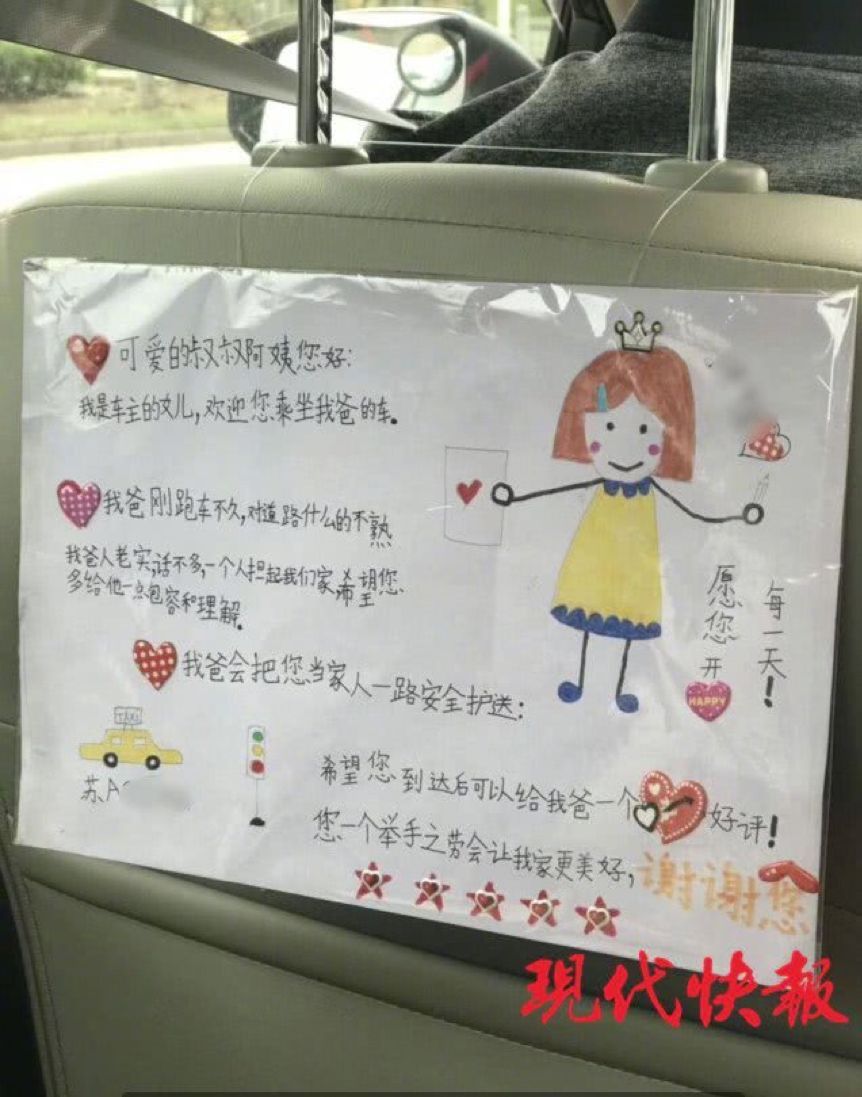 可爱的叔叔阿姨您好:
我是车主的女儿,欢迎您乘坐我爸的车。
我爸刚跑车不久,对道路什么的不熟
我爸人老实,话不多,一个人担起我们家,希望您
多给他一点包容和理解。
我爸会把您当家人一路安全护送:
TAXI
苏A
希望您到达后可以给我爸一个好评!
您一个举手之劳会让我家更美好,谢谢您
愿您开
HAPPY
每一天!
现代快報